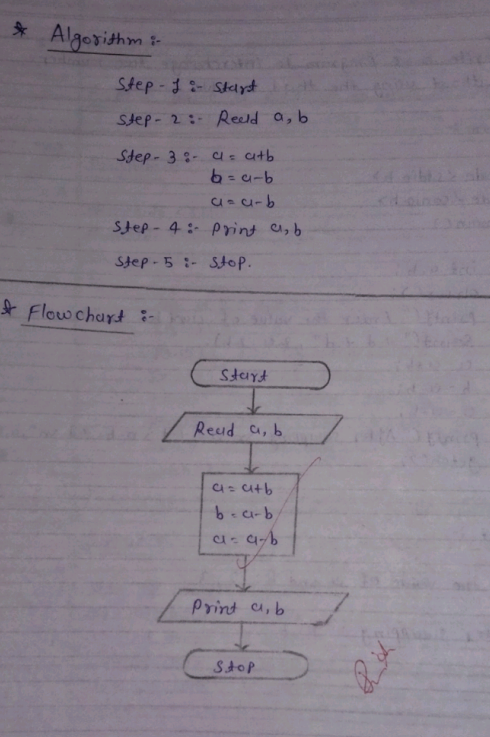 * Algorithm :-
Step - 1 :- Start
Step - 2 :- Read a, b
Step - 3 :- a = a+b
b = a-b
a = a-b
Step - 4 :- Print a, b
Step - 5 :- Stop.
* Flowchart :-
Start
Read a, b
a = a+b
b = a-b
a = a-b
Print a, b
Stop